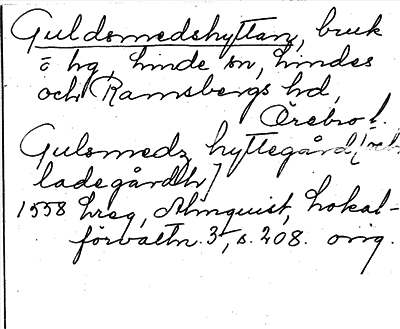 Guldsmedshyttan, bruk
o hg, Linde sn, Lindes
och Ramsbergs hd,
Örebro l.
Gulsmedz hyttegård [och
ladegårdh]
1558 hreg, Almquist, Lokal-
förvaltn. 3, s. 208. orig.